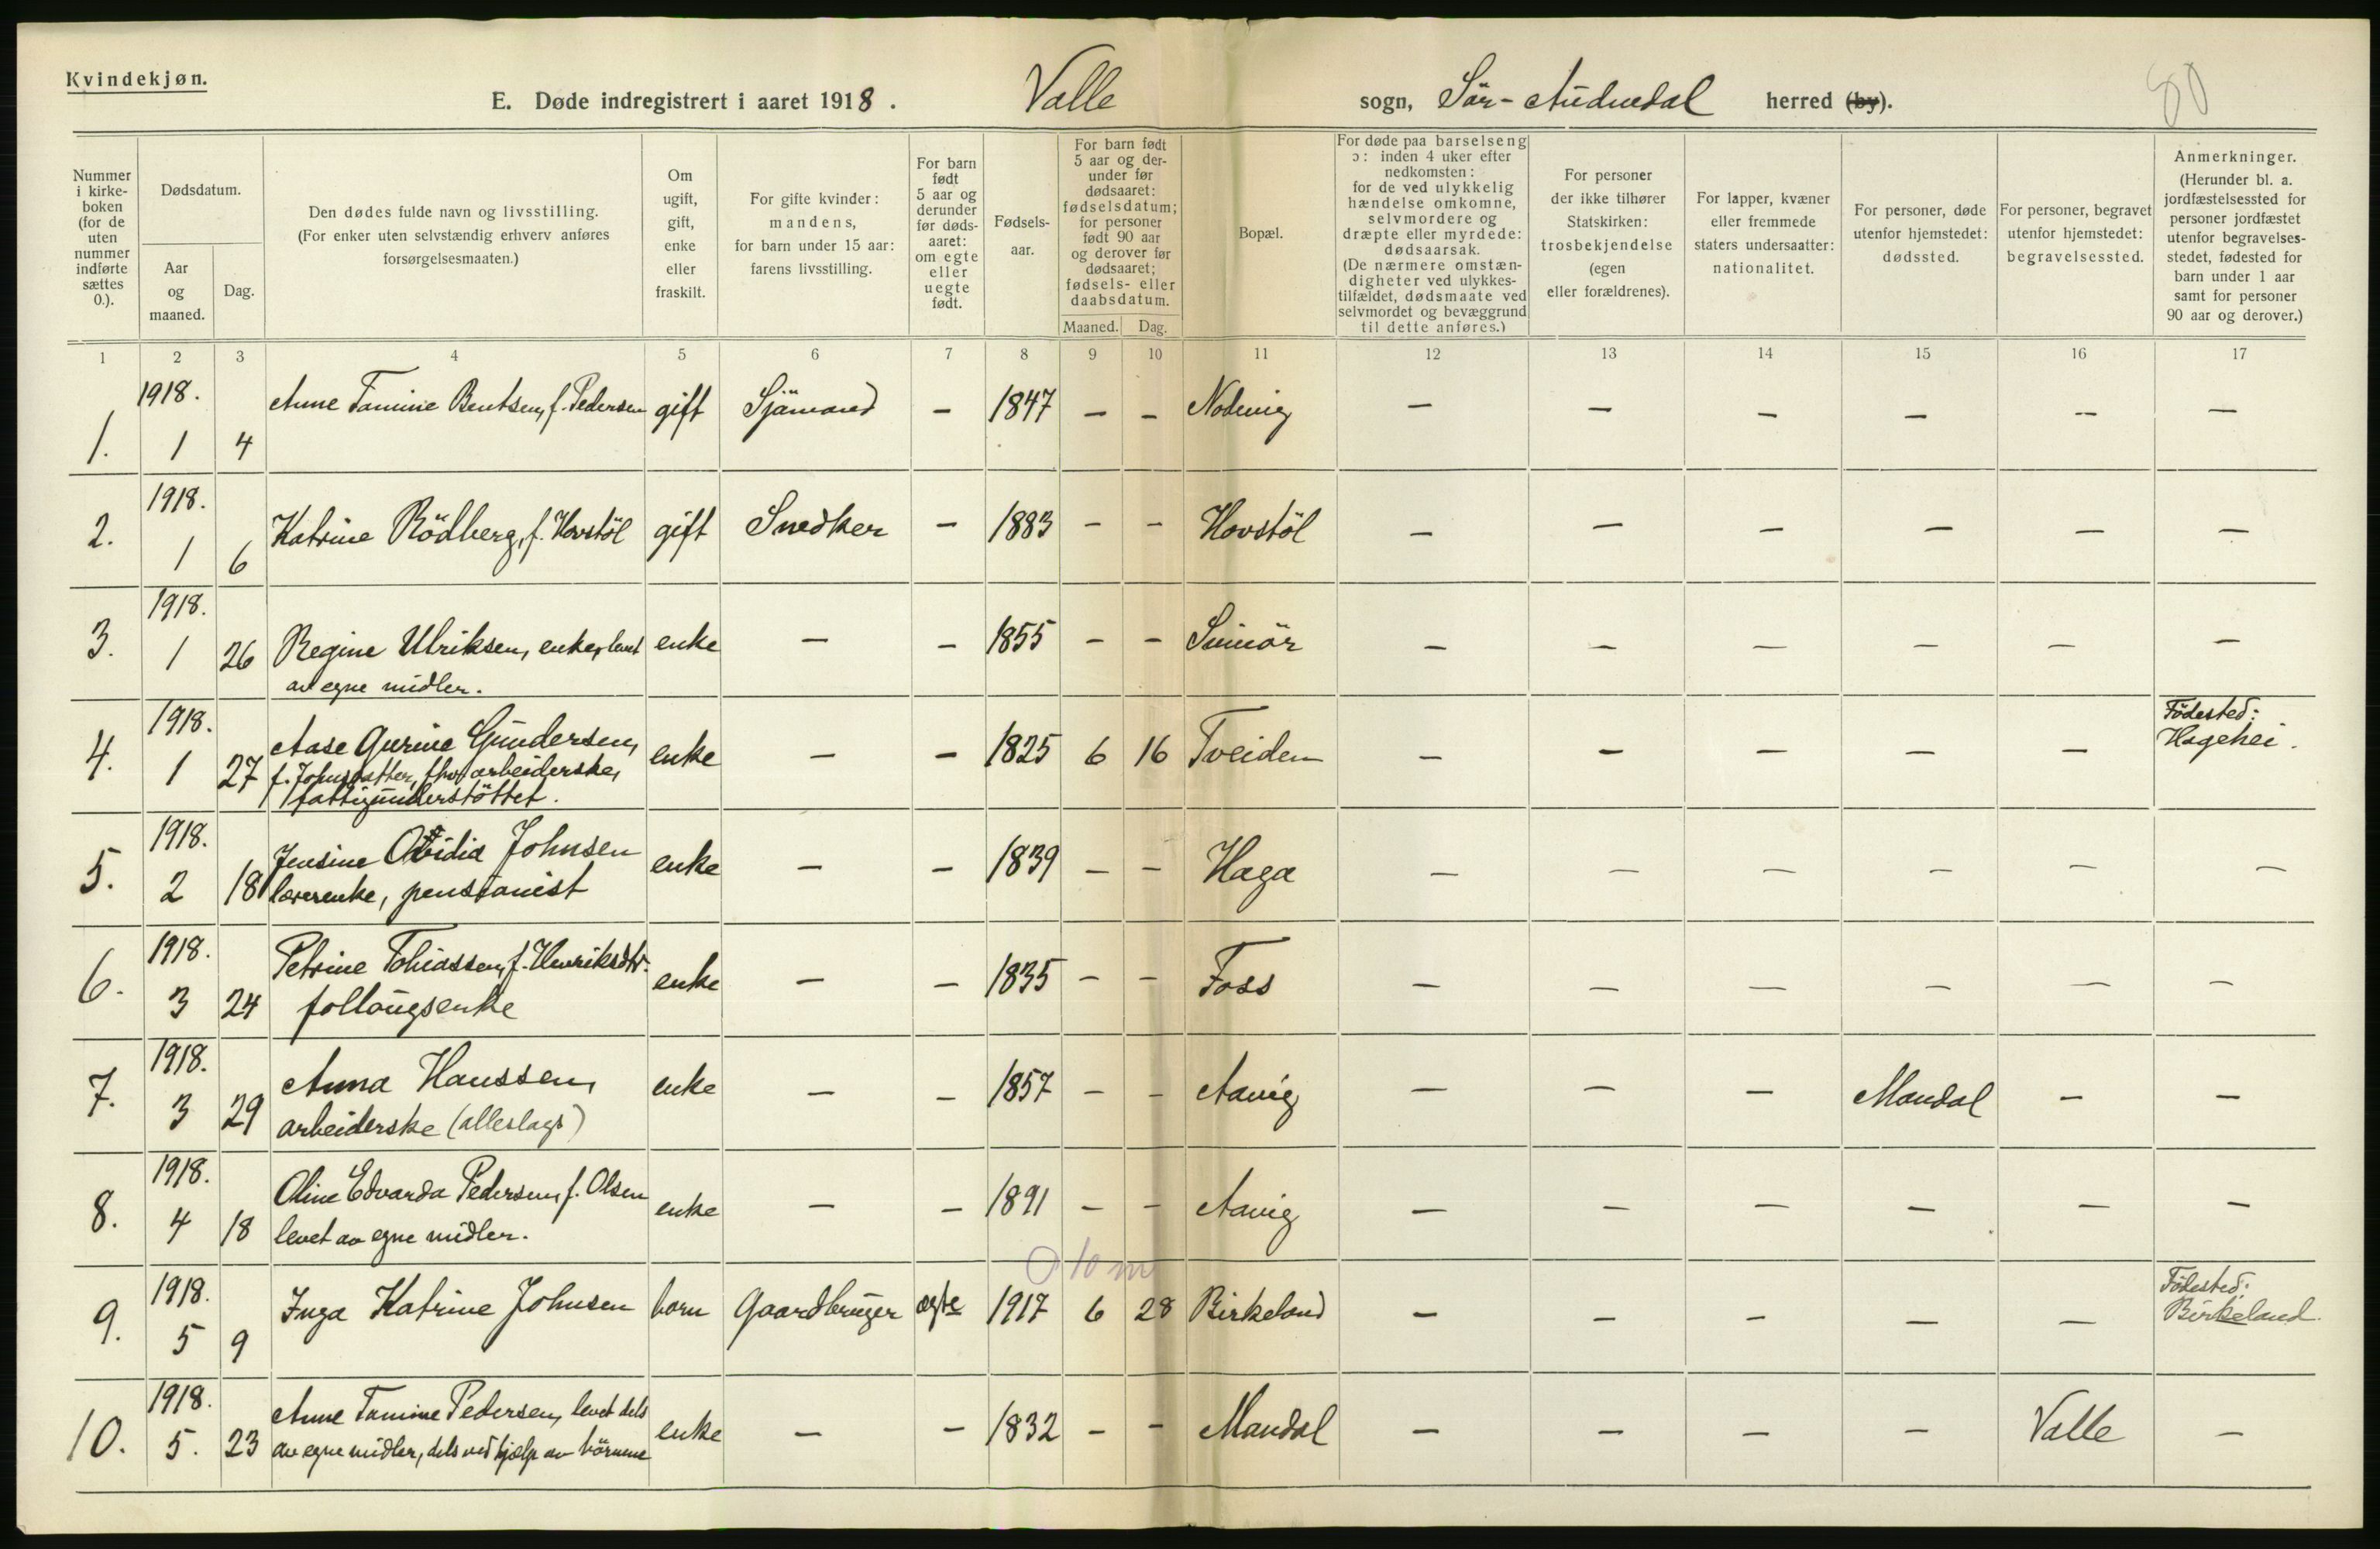 Kvindekjøn.
E. Døde indregistrert i aaret 1918. Valle sogn, Sör-Audnedal herred (by).
80
Nummer i kirke-boken (for de uten nummer indførte sættes 0.).
Dødsdatum.
Aar og maaned.
Dag.
Den dødes fulde navn og livsstilling.
(For enker uten selvstændig erhverv anføres
forsørgelsesmaaten.)
Om ugift, gift, enke eller fraskilt.
For gifte kvinder: mandens, for barn under 15 aar: farens livsstilling.
For barn født 5 aar og derunder før døds-aaret: om egte eller uegte født.
Fødsels-aar.
For barn født 5 aar og der-under før dødsaaret: fødselsdatum; for personer født 90 aar og derover før dødsaaret; fødsels- eller daabsdatum.
Maaned. Dag.
Bopæl.
For døde paa barselseng ɔ: inden 4 uker efter nedkomsten: for de ved ulykkelig hændelse omkomne, selvmordere og dræpte eller myrdede: dødsaarsak. (De nærmere omstæn-digheter ved ulykkes-tilfældet, dødsmaate ved selvmordet og bevæggrund til dette anføres.)
For personer der ikke tilhører Statskirken: trosbekjendelse (egen eller forældrenes).
For lapper, kvæner eller fremmede staters undersaatter: nationalitet.
For personer, døde utenfor hjemstedet: dødssted.
For personer, begravet utenfor hjemstedet: begravelsessted.
Anmerkninger. (Herunder bl. a. jordfæstelsessted for personer jordfæstet utenfor begravelses-stedet, fødested for barn under 1 aar samt for personer 90 aar og derover.)
1 2 3 4 5 6 7 8 9 10 11 12 13 14 15 16 17
1918.
1. 1 4 Anne Tomine Bentsen, f. Pedersen gift Sjömand - 1847 - - Nodevig - - - - - -
1918.
2. 1 6 Katrine Rödberg, f. Hovstöl gift Snedker - 1883 - - Hovstöl - - - - - -
1918.
3. 1 26 Regine Ulriksen, enke, levet enke - - 1855 - - Svinör - - - - - -
av egne midler.
1918.
4. 1 27 Aase Gurine Gundersen, enke - - 1825 6 16 Tveiden - - - - - Födested: Hagehei.
f. Johnsdatter, fhv. arbeiderske,
fattigunderstöttet.
1918.
5. 2 18 Jensine Ovidia Johnsen enke - - 1839 - - Haga - - - - - -
lærerenke, pensionist
1918.
6. 3 24 Petrine Tobiassen, f. Henriksdtr. enke - - 1835 - - Foss - - - - - -
follougsenke
1918.
7. 3 29 Anna Hanssen, enke - - 1857 - - Aavig - - - Mandal - -
arbeiderske (alleslags)
1918.
8. 4 18 Oline Edvarda Pedersen, f. Olsen enke - - 1891 - - Aavig - - - - - -
levet av egne midler.
0 10 m
1918.
9. 5 9 Inga Katrine Johnsen barn Gaardbruger ægte 1917 6 28 Birkeland - - - - - Födested: Birkeland.
1918.
10. 5. 23 Anne Tomine Pedersen, levet dels enke - - 1832 - - Mandal - - - - Valle -
av egne midler, dels ved hjælp av börnene